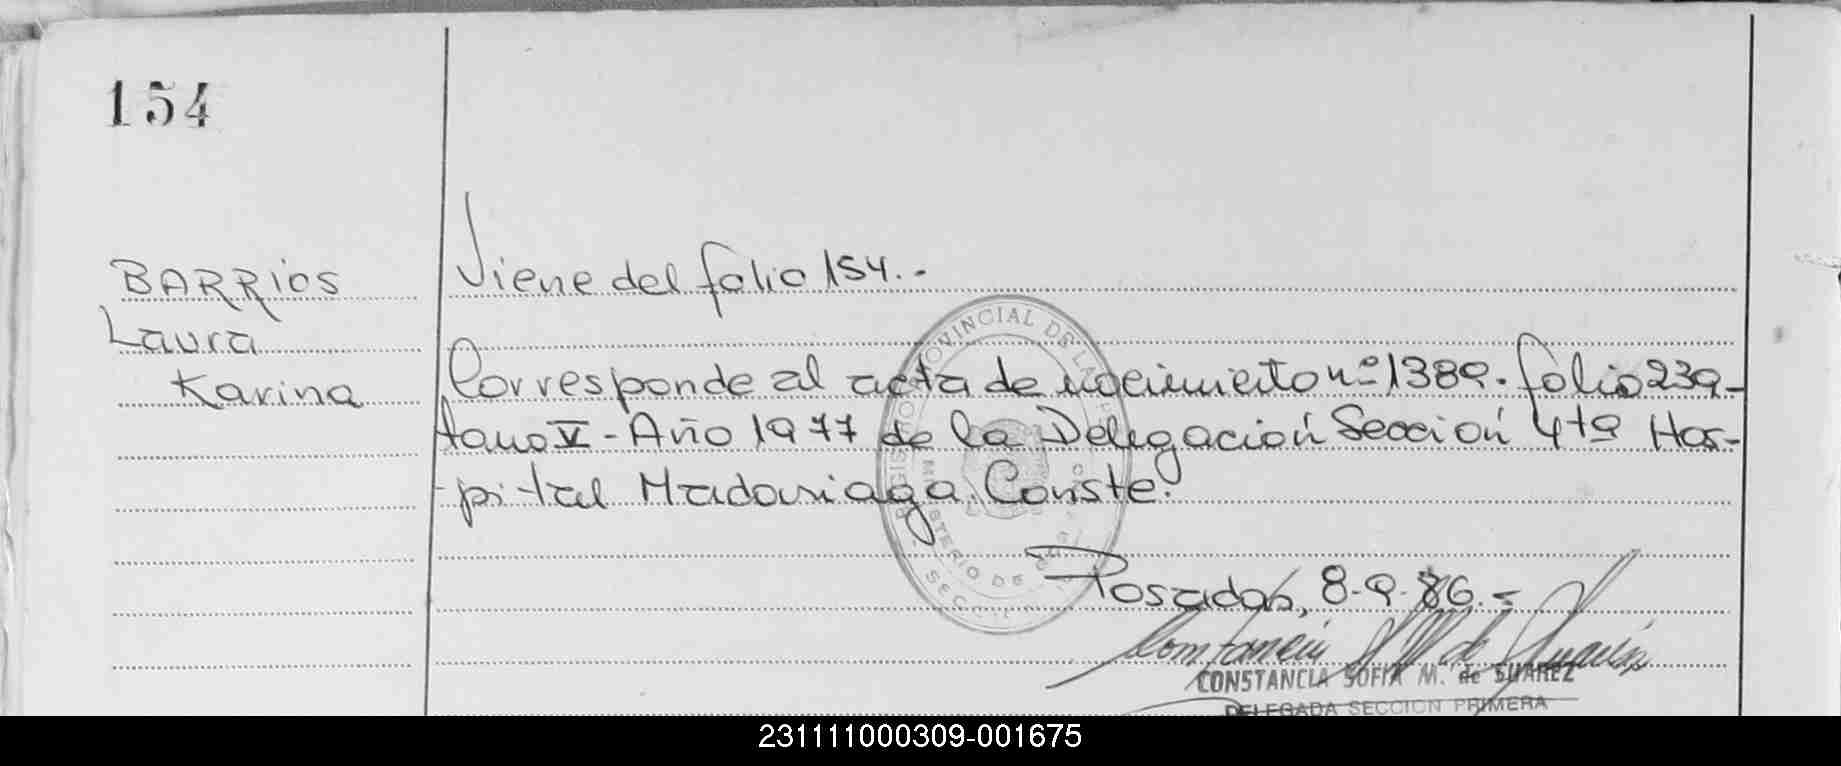 154
BARRIOS
Laura
Karina
Viene del folio 154.-
Corresponde al acta de nacimiento nº 1389. folio 239-
tomo V - Año 1977 de la Delegación Sección 4ta Hos-
-pital Madariaga. Conste.
Posadas, 8-9-86.-
CONSTANCIA SOFIA M. de SUAREZ
DELEGADA SECCION PRIMERA
231111000309-001675